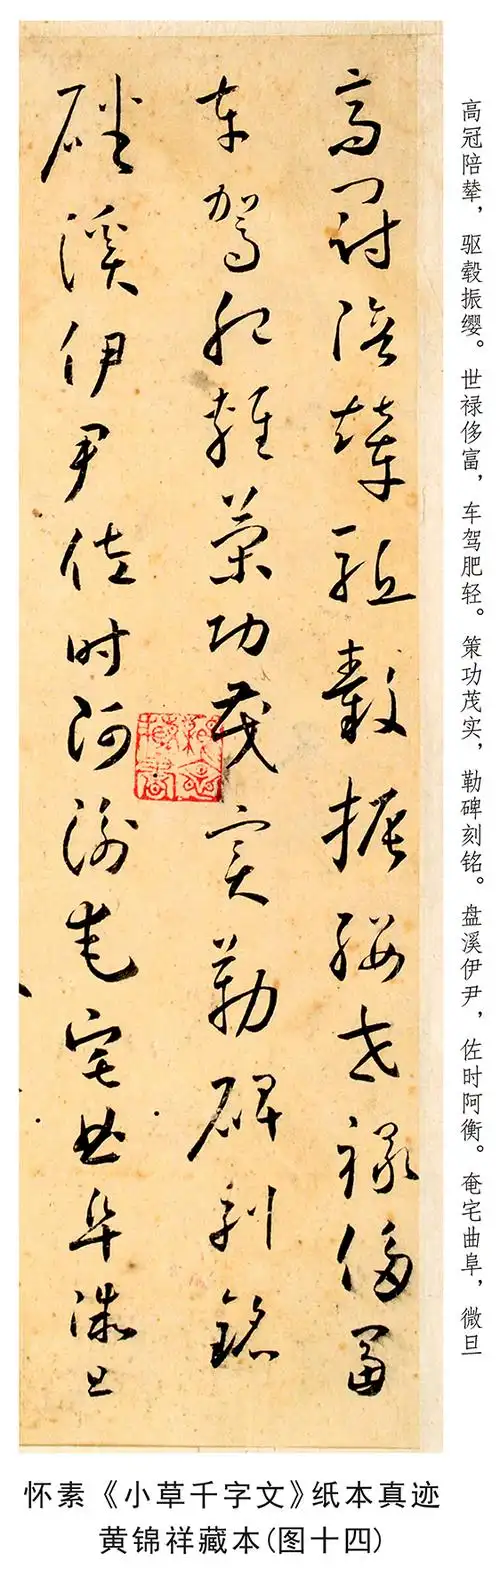 高冠陪辇，驱毂振缨。世禄侈富，车驾肥轻。策功茂实，勒碑刻铭。盘溪伊尹，佐时阿衡。奄宅曲阜，微旦
高冠陪輦驅轂振纓世祿侈富
車駕肥輕策功茂實勒碑刻銘
磻溪伊尹佐時阿衡奄宅曲阜微旦
怀素《小草千字文》纸本真迹
黄锦祥藏本(图十四)